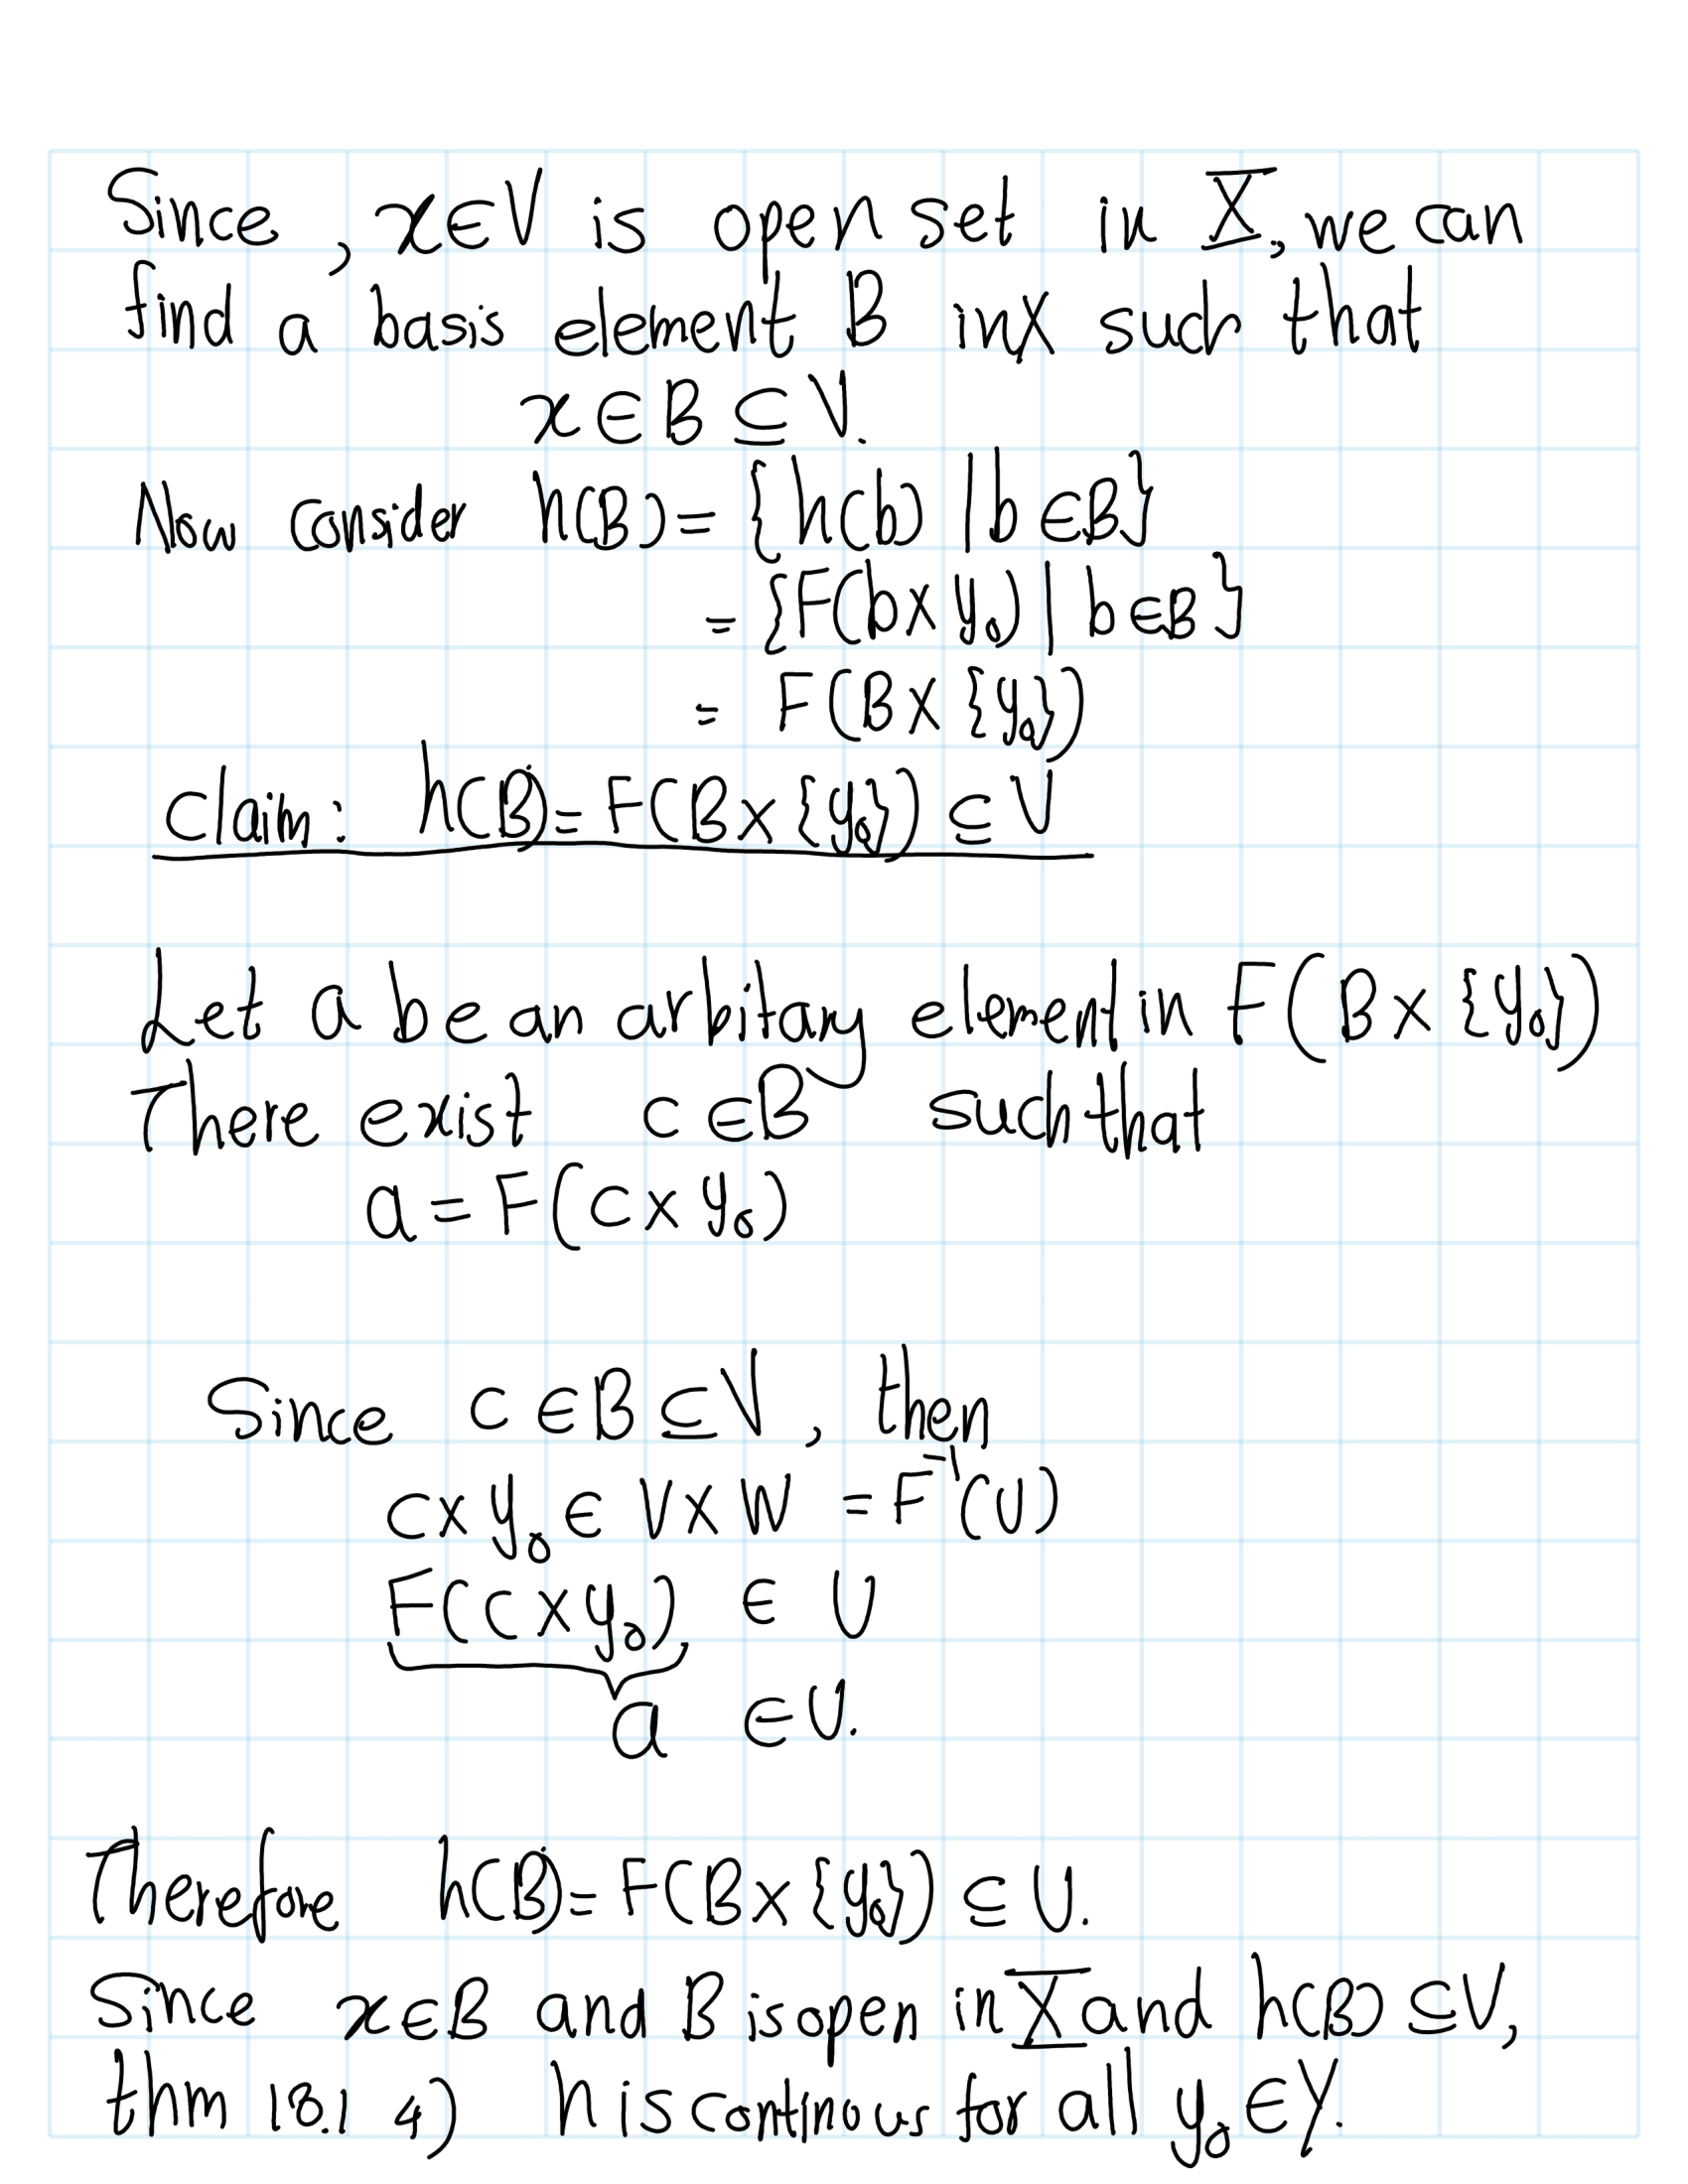 Since, x∈V is open set in X, we can
find a basis element B in X such that
x∈B⊆V.
Now consider h(B)={h(b) | b∈B}
= {F(b×y₀) | b∈B}
= F(B×{y₀})
Claim: h(B)=F(B×{y₀}) ⊆ U
Let a be an arbitary element in F(B×{y₀})
There exist c∈B such that
a=F(c×y₀)
Since c∈B⊆V, then
c×y₀∈V×W =F⁻¹(U)
F(c×y₀) ∈ U
a ∈U.
Therefore h(B)=F(B×{y₀}) ⊆ U.
Since x∈B and B is open in X and h(B) ⊆V,
thm 18.1 4) h is continous for all y₀∈Y.